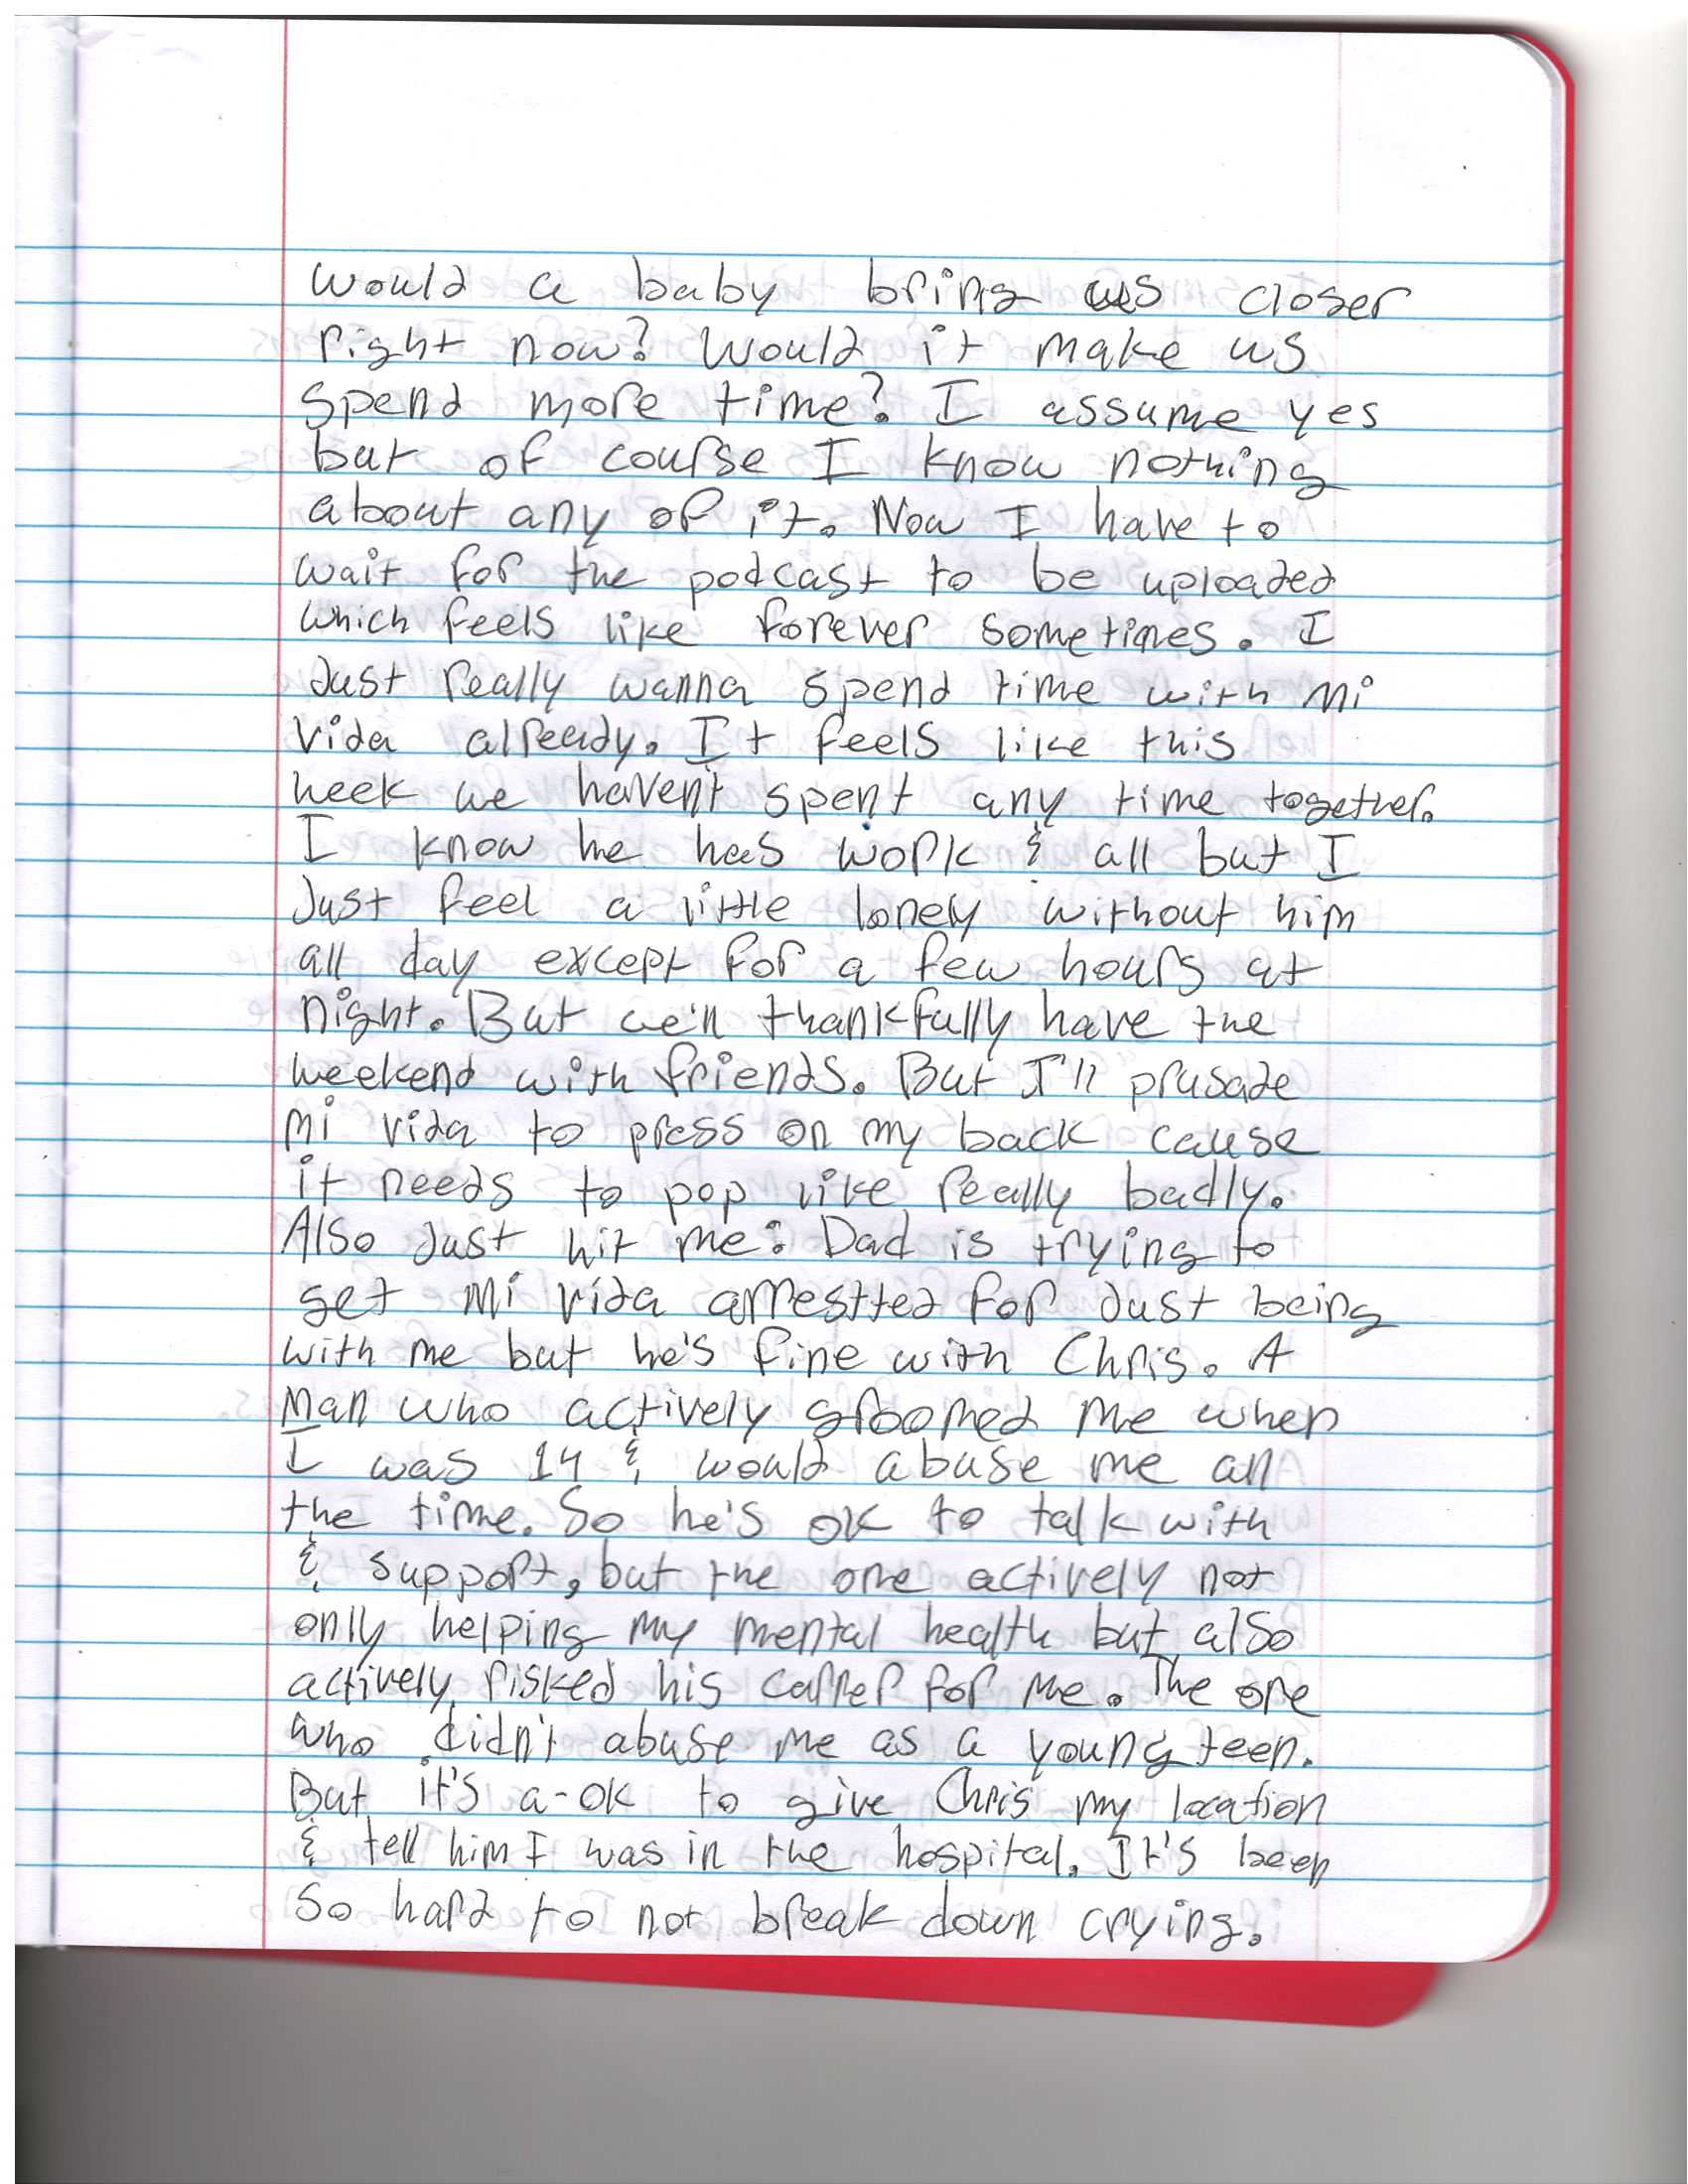 would a baby bring us closer
right now? Would it make us
spend more time? I assume yes
but of course I know nothing
about any of it. Now I have to
wait for the podcast to be uploaded
which feels like forever sometimes. I
Just really wanna spend time with mi
vida already. It feels like this
week we haven't spent any time together.
I know he has work & all but I
Just feel a little lonely without him
all day except for a few hours at
night. But we'll thankfully have the
weekend with friends. But I'll prusade
mi vida to press on my back cause
it needs to pop like really badly.
Also Just hit me: Dad is trying to
get mi vida arrestted for Just being
with me but he's fine with Chris. A
Man who actively groomed me when
I was 14 & would abuse me all
the time. So he's ok to talk with
& support, but the one actively not
only helping my mental health but also
actively risked his carrer for me. The one
who didn't abuse me as a young teen.
But it's a-ok to give Chris my location
& tell him I was in the hospital. It's been
so hard to not break down crying.